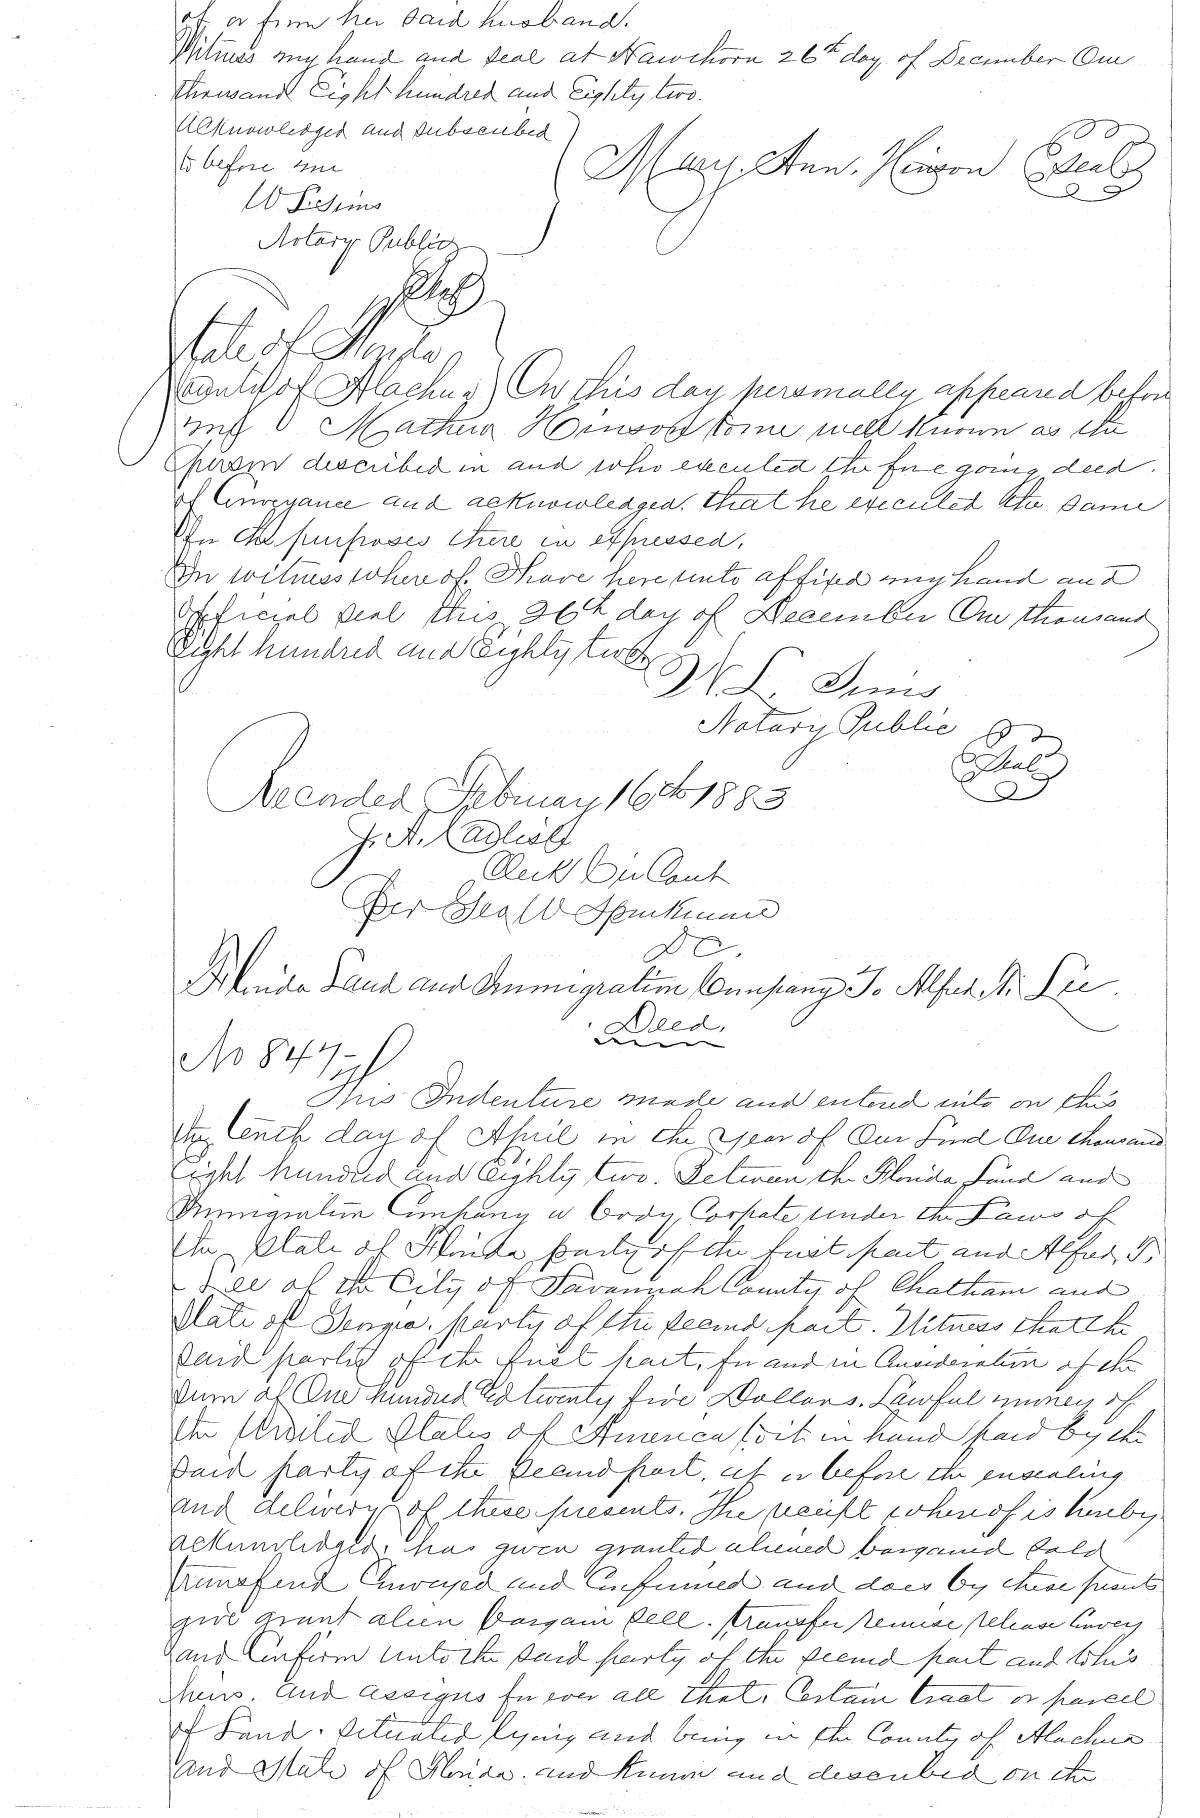 of or from her said husband.
Witness my hand and seal at Hawthorn 26th day of December One
thousand Eight hundred and Eighty two.
Acknowledged and subscribed
to before me
Mary. Ann. Hinson Seal
W L Sims
Notary Public
Seal
State of Florida
County of Alachua On this day personally appeared before
me Mathew Hinson to me well known as the
person described in and who executed the fore going deed.
of Conveyance and acknowledged. that he executed the same
for the purposes there in expressed.
In witness where of. I have here unto affixed my hand and
Official seal this 26th day of December One thousand
Eight hundred and Eighty two
W. L. Sims
Notary Public
Seal
Recorded February 16th 1883
J. A. Carlisle
Clerk Cir Court
Per Geo W Sparkman
DC.
Florida Land and Immigration Company To Alfred T. Lee.
Deed.
No 847
This Indenture made and entered into on this
the tenth day of April in the year of Our Lord One thousand
Eight hundred and Eighty two. Between the Florida Land and
Immigration Company a body Corpate under the Laws of
the State of Florida party of the first part and Alfred. T.
Lee of the City of Savannah County of Chatham and
State of Georgia. party of the second part. Witness that the
said partie of the first part, for and in Consideration of the
sum of One hundred and twenty five Dollars. Lawful money of
the United States of America to it in hand paid by the
said party of the second part. at or before the ensealing
and delivery of these presents. The receipt where of is hereby
acknowledged. has given granted aliened bargained sold
transferd Conveyed and Confirmed and does by these presents
give grant alien bargain sell. transfer remise release Convey
and Confirm unto the said party of the second part and to his
heirs. and assigns for ever all that. Certain tract or parcel
of Land. situated lying and being in the County of Alachua
and State of Florida. and known and described on the